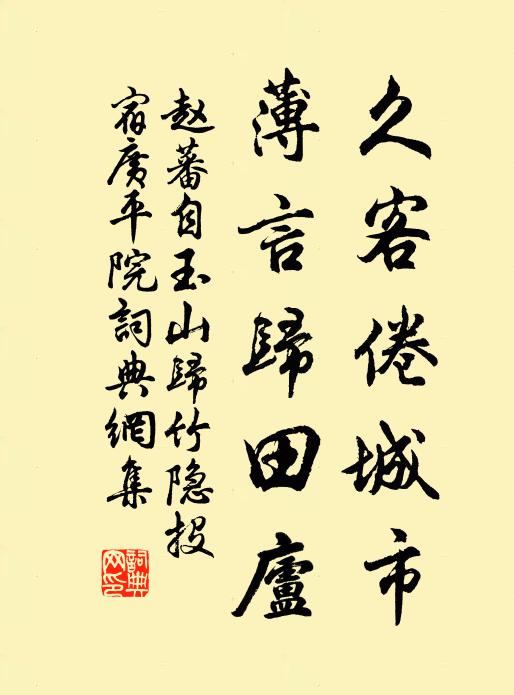 久客倦城市
薄言歸田廬
赵蕃自玉山歸竹隐投
宿廣平院詞典網集
詞典网印